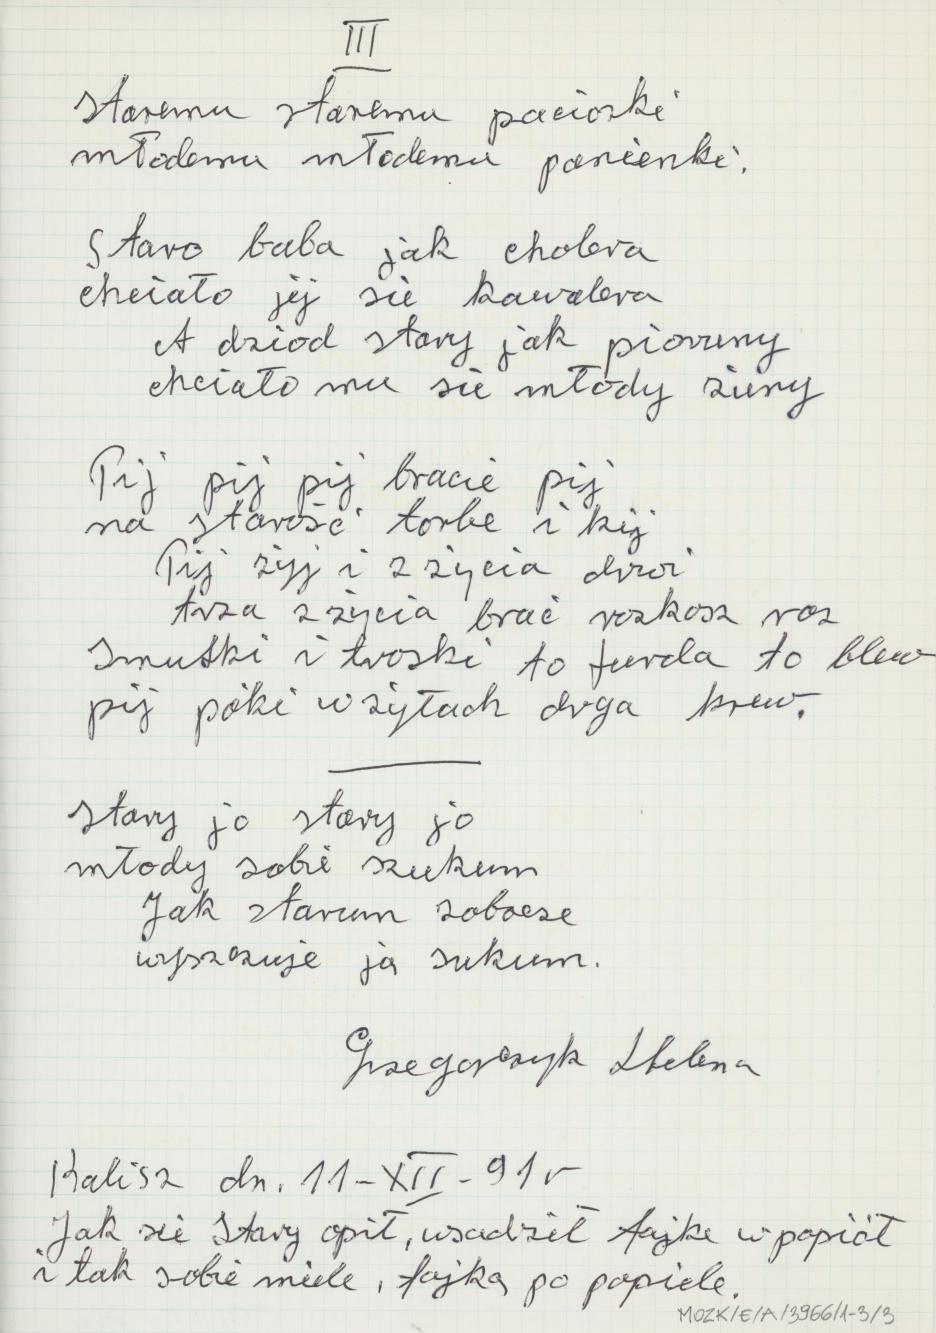 III
Staremu staremu paciorki
młodemu młodemu panienki.
Staro baba jak cholera
chciało jej sie kawalera
A dziod stary jak pioruny
chciało mu sie młody żuny
Pij pij pij bracie pij
na starość torbe i kij
Pij żyj i z życia drwi
trza z życia brać rozkosz roz
Smutki i troski to furda to blew
pij póki w żyłach drga krew.
Stary jo stary jo
młody sobie szukum
Jak starum zobocze
wyszczuje ją sukum.
Grzegorczyk Helena
Kalisz dn. 11-XII-91r
Jak sie Stary opił, wsadził fajke w popiół
i tak sobie miele, fajką po popiele.
MOZK/E/A/3966/1-3/3